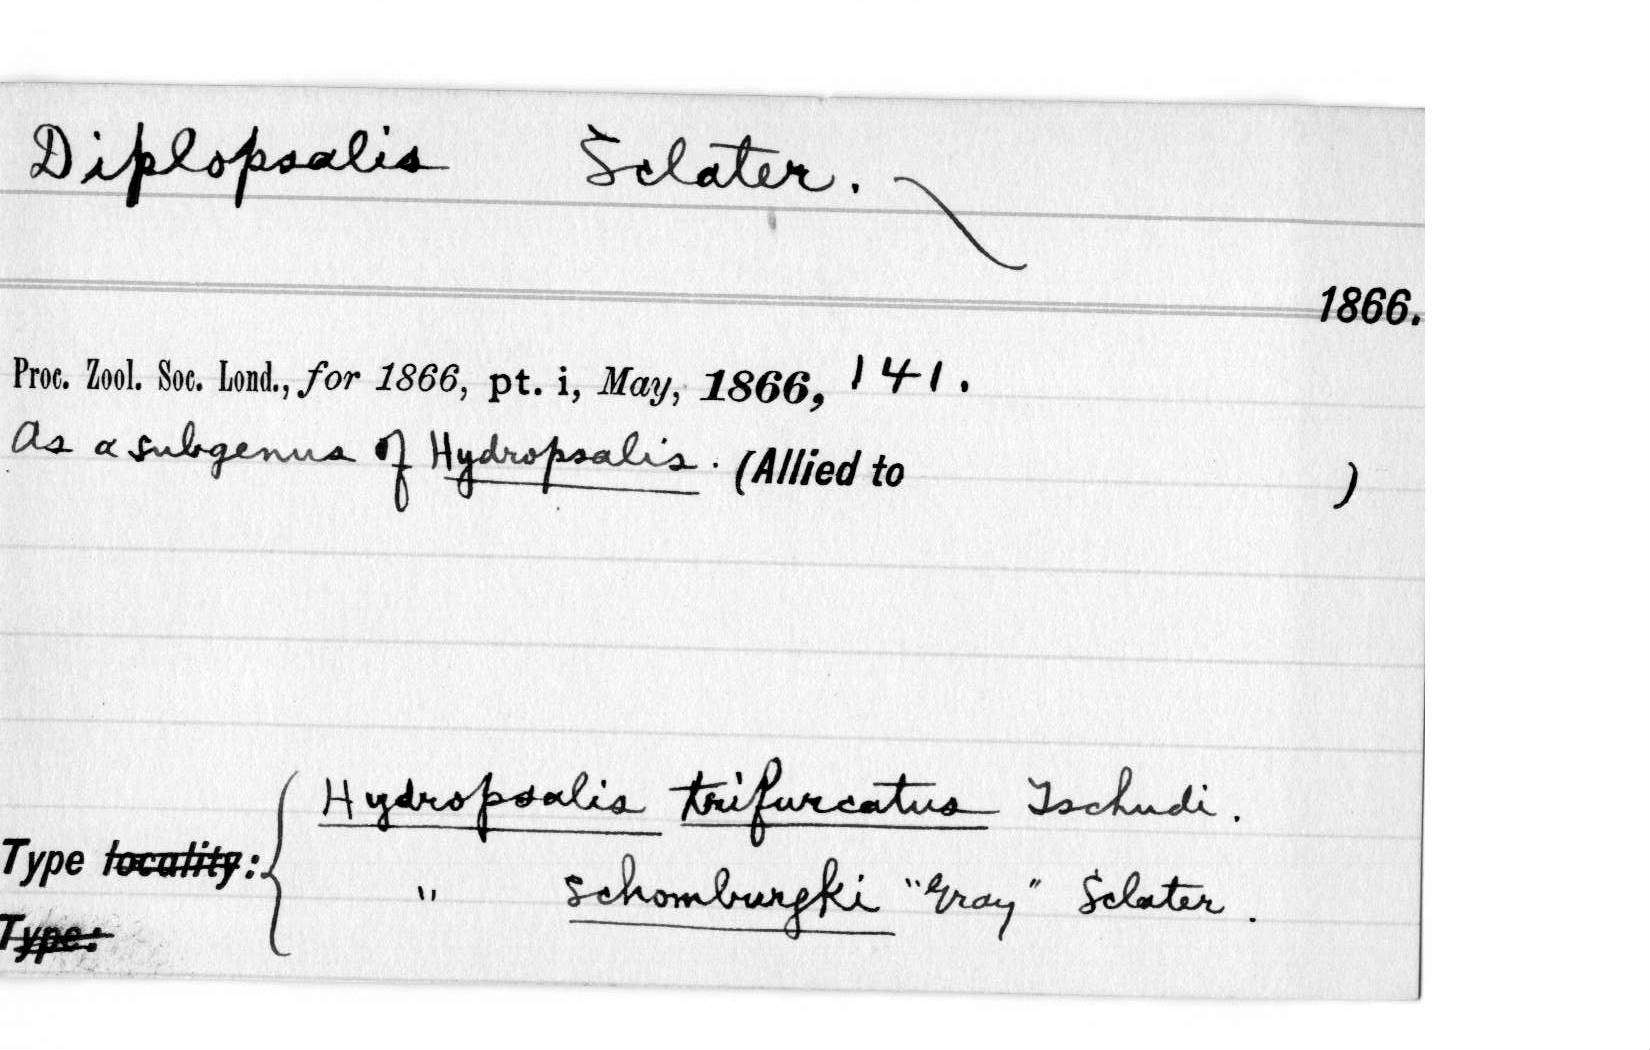 Diplopsalis Sclater.
1866.
Proc. Zool. Soc. Lond., for 1866, pt. i, May, 1866, 141.
As a subgenus of Hydropsalis. (Allied to )
Hydropsalis trifurcatus Tschudi.
Type locality:
" schomburgki "Gray" Sclater.
Type: